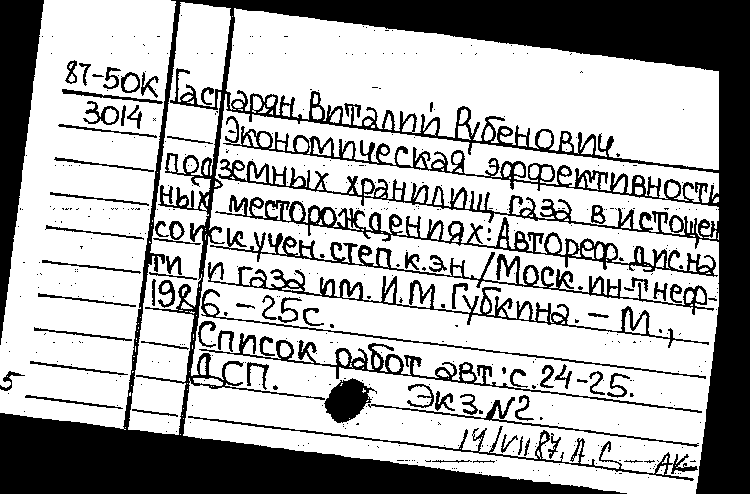 87-50К Гаспарян, Виталий Рубенович.
3014 Экономическая эффективность
подземных хранилищ газа в истощен
ных месторождениях: Автореф. дис. на
соиск. учен. степ. к.э.н. / Моск. ин-т неф-
ти и газа им. И.М. Губкина. – М.,
1986. – 25 с.
Список работ авт.: с. 24-25.
ДСП.
Экз. N2.
5
14/VII 87, А. С. АК